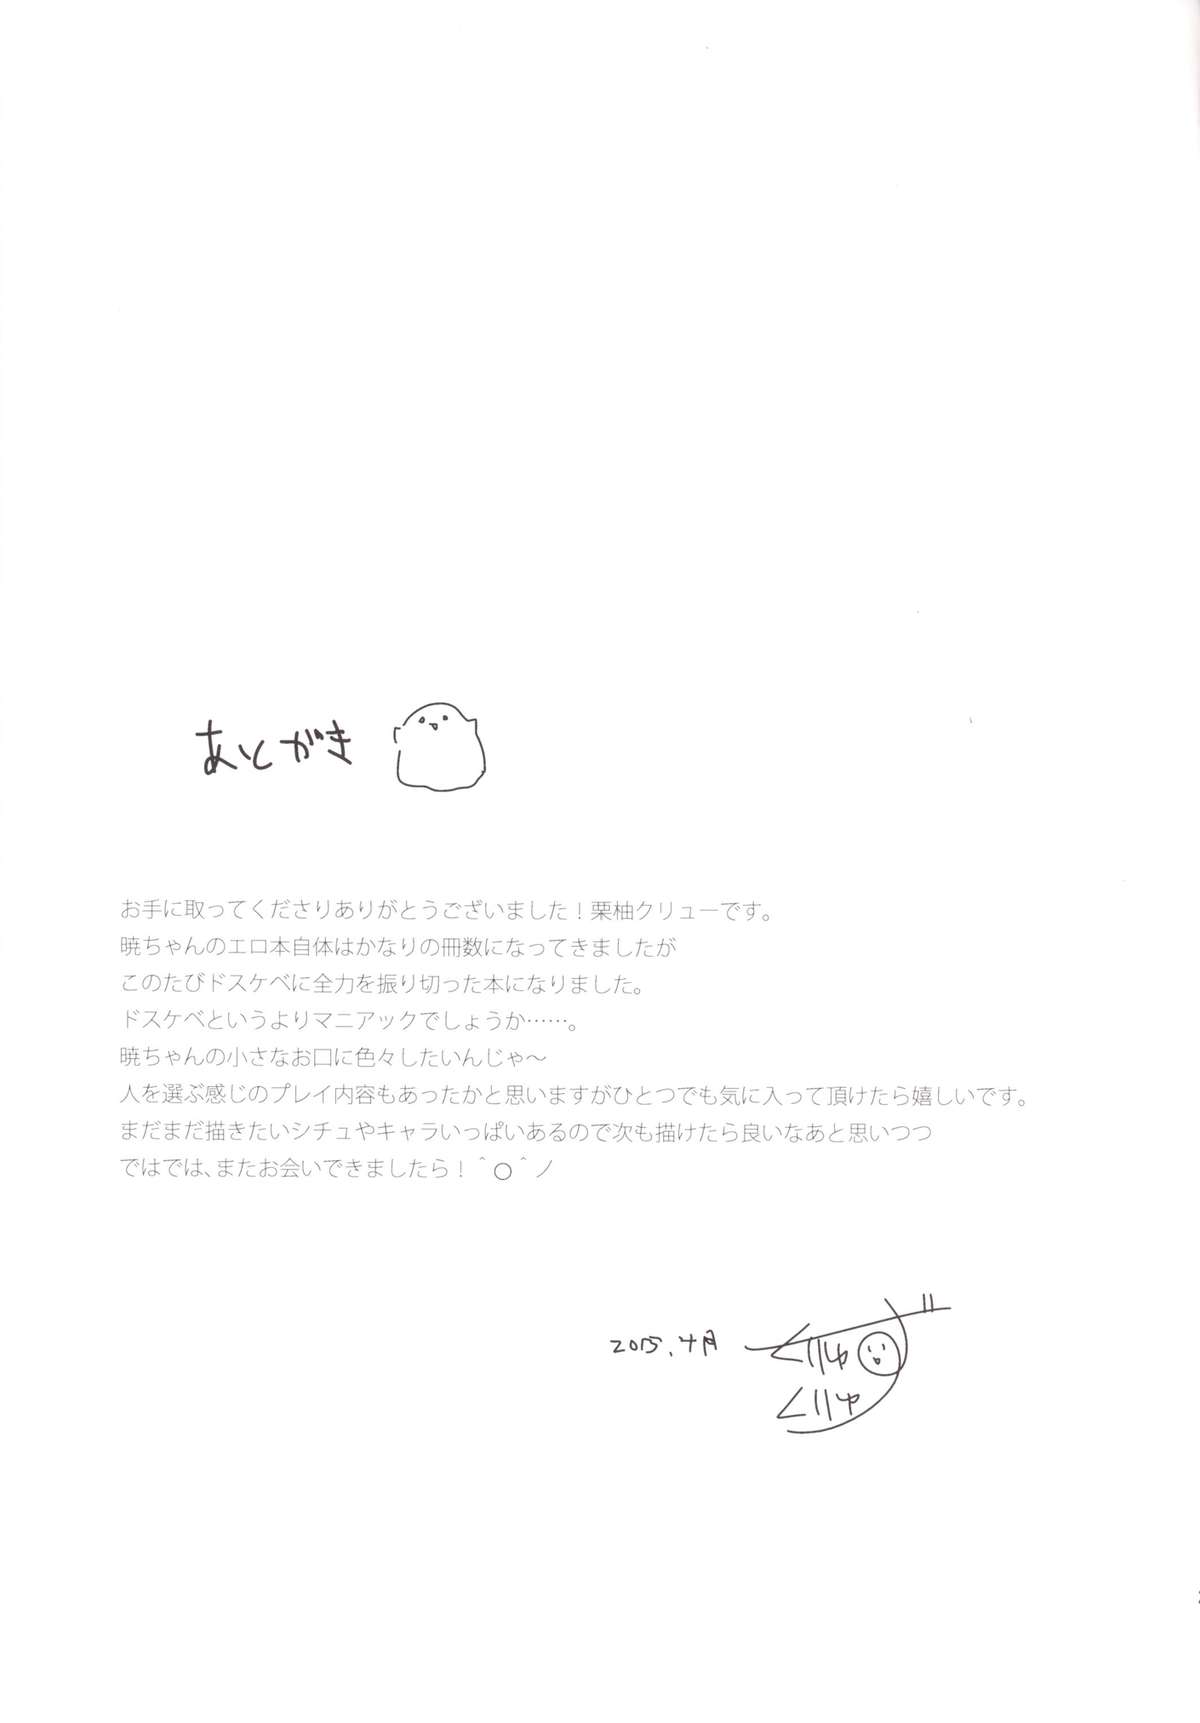 あとがき
お手に取ってくださりありがとうございました！栗柚クリューです。
暁ちゃんのエロ本自体はかなりの冊数になってきましたが
このたびドスケベに全力を振り切った本になりました。
ドスケベというよりマニアックでしょうか……。
暁ちゃんの小さなお口に色々したいんじゃ〜
人を選ぶ感じのプレイ内容もあったかと思いますがひとつでも気に入って頂けたら嬉しいです。
まだまだ描きたいシチュやキャラいっぱいあるので次も描けたら良いなあと思いつつ
ではでは、またお会いできましたら！＾○＾ノ
2015.4月
くりゅ
くりゅ